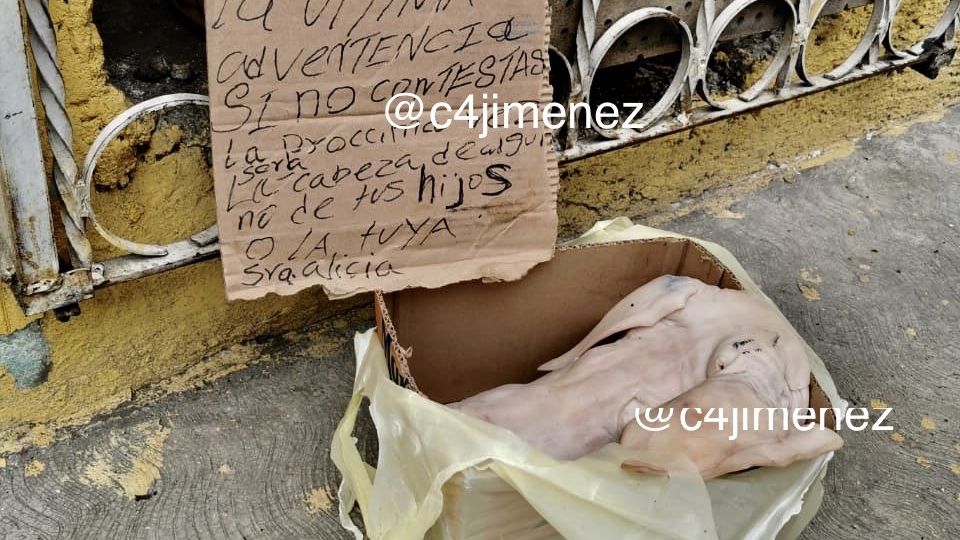 la ultima
adverTENCIa
SI no conTESTAS
La Proccima
Sera
La cabeza dealgu
no de tus hijos
O lA tuYA
Sra alicia
@c4jimenez
@c4jimenez